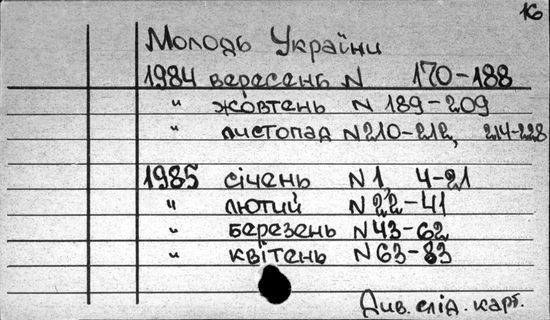 16
Молодь України
1984 вересень N 170-188
" жовтень N 189-209
" листопад N 210-212, 214-228
1985 січень N 1, 4-21
" лютий N 22-41
" березень N 43-62
" квітень N 63-83
Див. слід. карт.